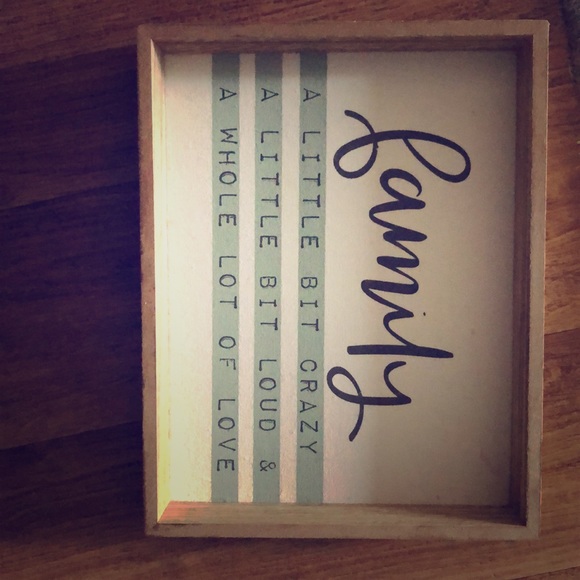 family
A LITTLE BIT CRAZY
A LITTLE BIT LOUD &
A WHOLE LOT OF LOVE